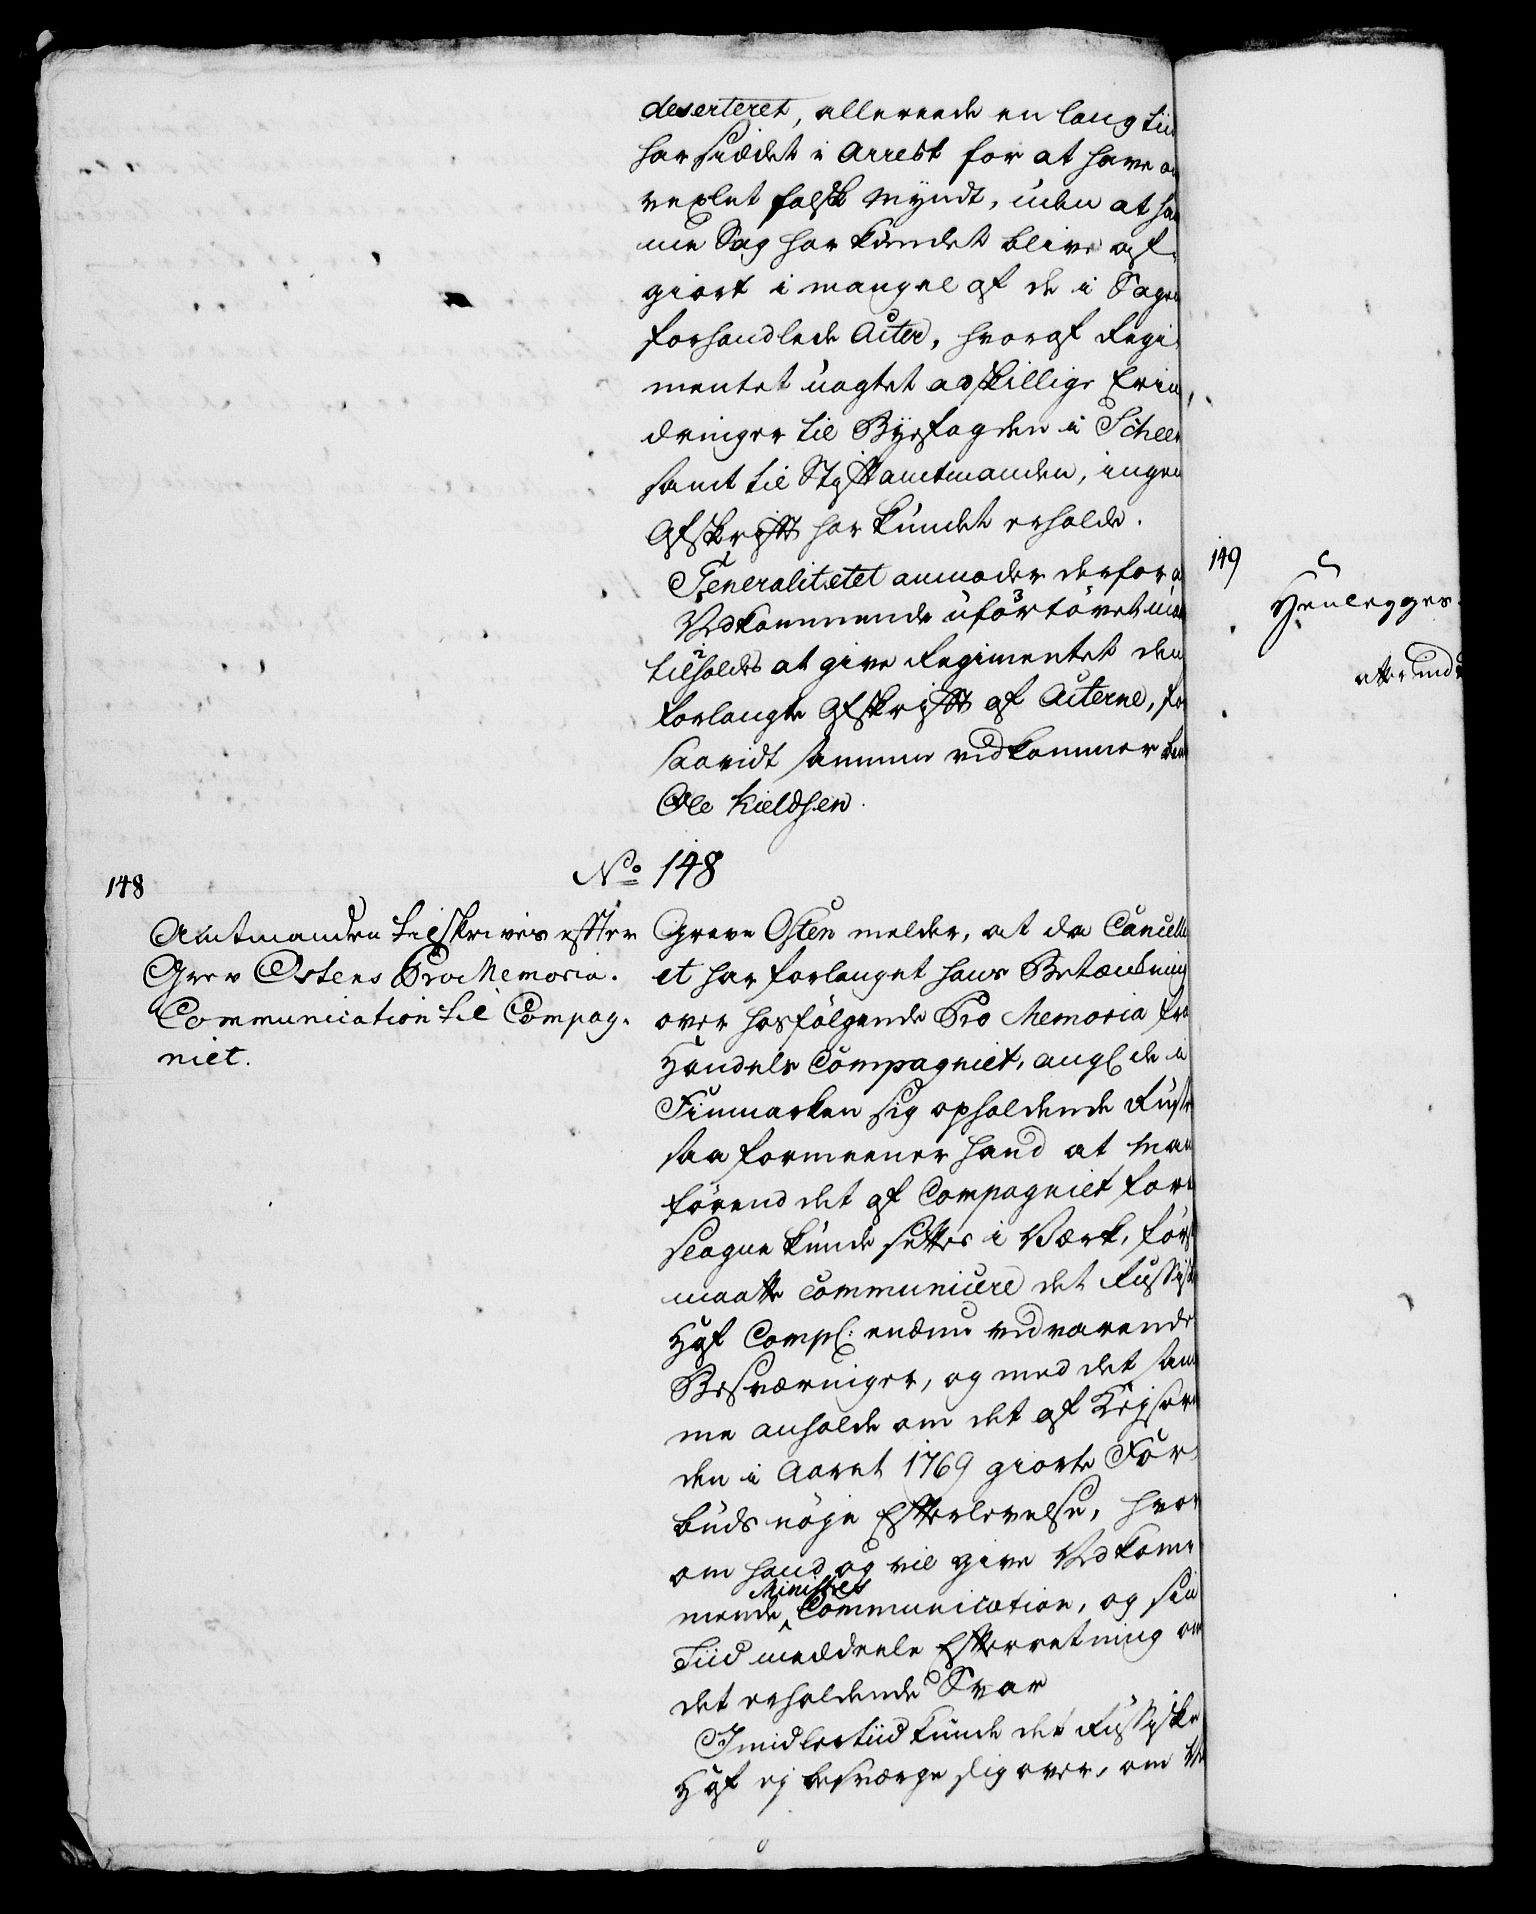 deserteret, allereede en lang tiid
har siddet i Arrest for at have
vexlet falsk Myndt, uden at han
ne Sag har kundet blive af-
giort i mangel af de i Sagen
forhandlede Acter, hvoraf Regi
mentet uagtet adskillige Erin
dringer til Byefogden i Scheen
samt til Stiftamtmanden, ingen
Afskrifft har kundet erholde.
Generalitetet anmoder derfor at
Vedkommende ufortövet maae
tilholdes at give Regimentet den
forlangte Afskrifft af Acterne, for
saavidt samme vedkommer bem
Ole Kieldsen.
No 148
148
Amtmanden tilskrives effter
Grev Ostens Pro Memoria.
Communication til Compag-
niet.
Greve Osten melder, at da Cancelli
et har forlanget hans Betænkning
over hosfölgende Pro Memoria fra
Handels Compagniet, angl de i
Finmarken sig opholdende Russer
saa formeener hand at man
förend det af Compagniet fore
slagne kunde settes i Værk, först
maatte communicere det Russiske
Hof Compl: endnu vedvarende
Besværinger, og med det sam
me anholde om det af Keyserin
den i Aaret 1769 giorte For-
buds nöye Effterlevelse, hvor
om hand og vil give Vedkom
mende Ministres Communication, og sin
Tiid meddeele Effterretning om
det erholdende Svar
Imidlertiid kunde det Russiske
Hof ej besværge sig over, om
149
Henlegges.